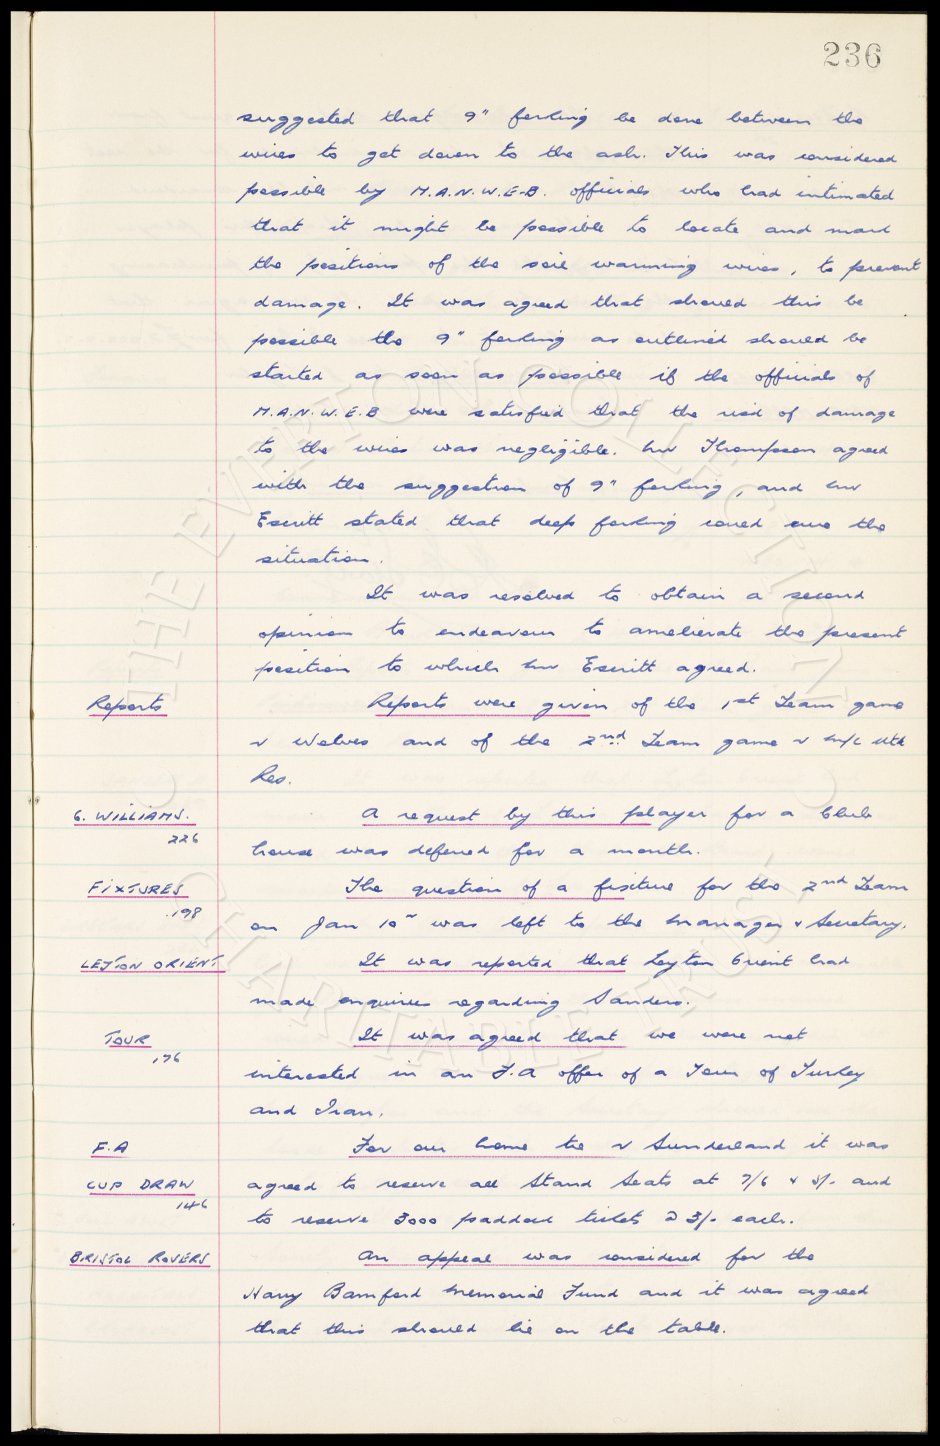 236
suggested that 9" forking be done between the
wires to get down to the ash. This was considered
possible by M.A.N.W.E.B. officials who had intimated
that it might be possible to locate and mark
the positions of the soil warming wires, to prevent
damage. It was agreed that should this be
possible the 9" forking as outlined should be
started as soon as possible if the officials of
M.A.N.W.E.B were satisfied that the risk of damage
to the wires was negligible. Mr Thompson agreed
with the suggestion of 9" forking, and Mr
Escritt stated that deep forking could cure the
situation.
It was resolved to obtain a second
opinion to endeavour to ameliorate the present
position to which Mr Escritt agreed.
Reports Reports were given of the 1st Team game
v Wolves and of the 2nd Team game v M/c Utd
Res.
G. WILLIAMS. A request by this player for a Club
226
house was deferred for a month.
FIXTURES The question of a fixture for the 2nd Team
198
on Jan 10" was left to the Manager & Secretary.
LEYTON ORIENT It was reported that Leyton Orient had
made enquiries regarding Sanders.
TOUR It was agreed that we were not
176
interested in an F.A offer of a Tour of Turkey
and Iran.
F.A For our home tie v Sunderland it was
CUP DRAW agreed to reserve all Stand Seats at 7/6 & 5/- and
146
to reserve 3000 paddock tickets @ 3/- each.
BRISTOL ROVERS An appeal was considered for the
Harry Bamford Memorial Fund and it was agreed
that this should lie on the table.
THE EVERTON COLLECTION
CHARITABLE TRUST